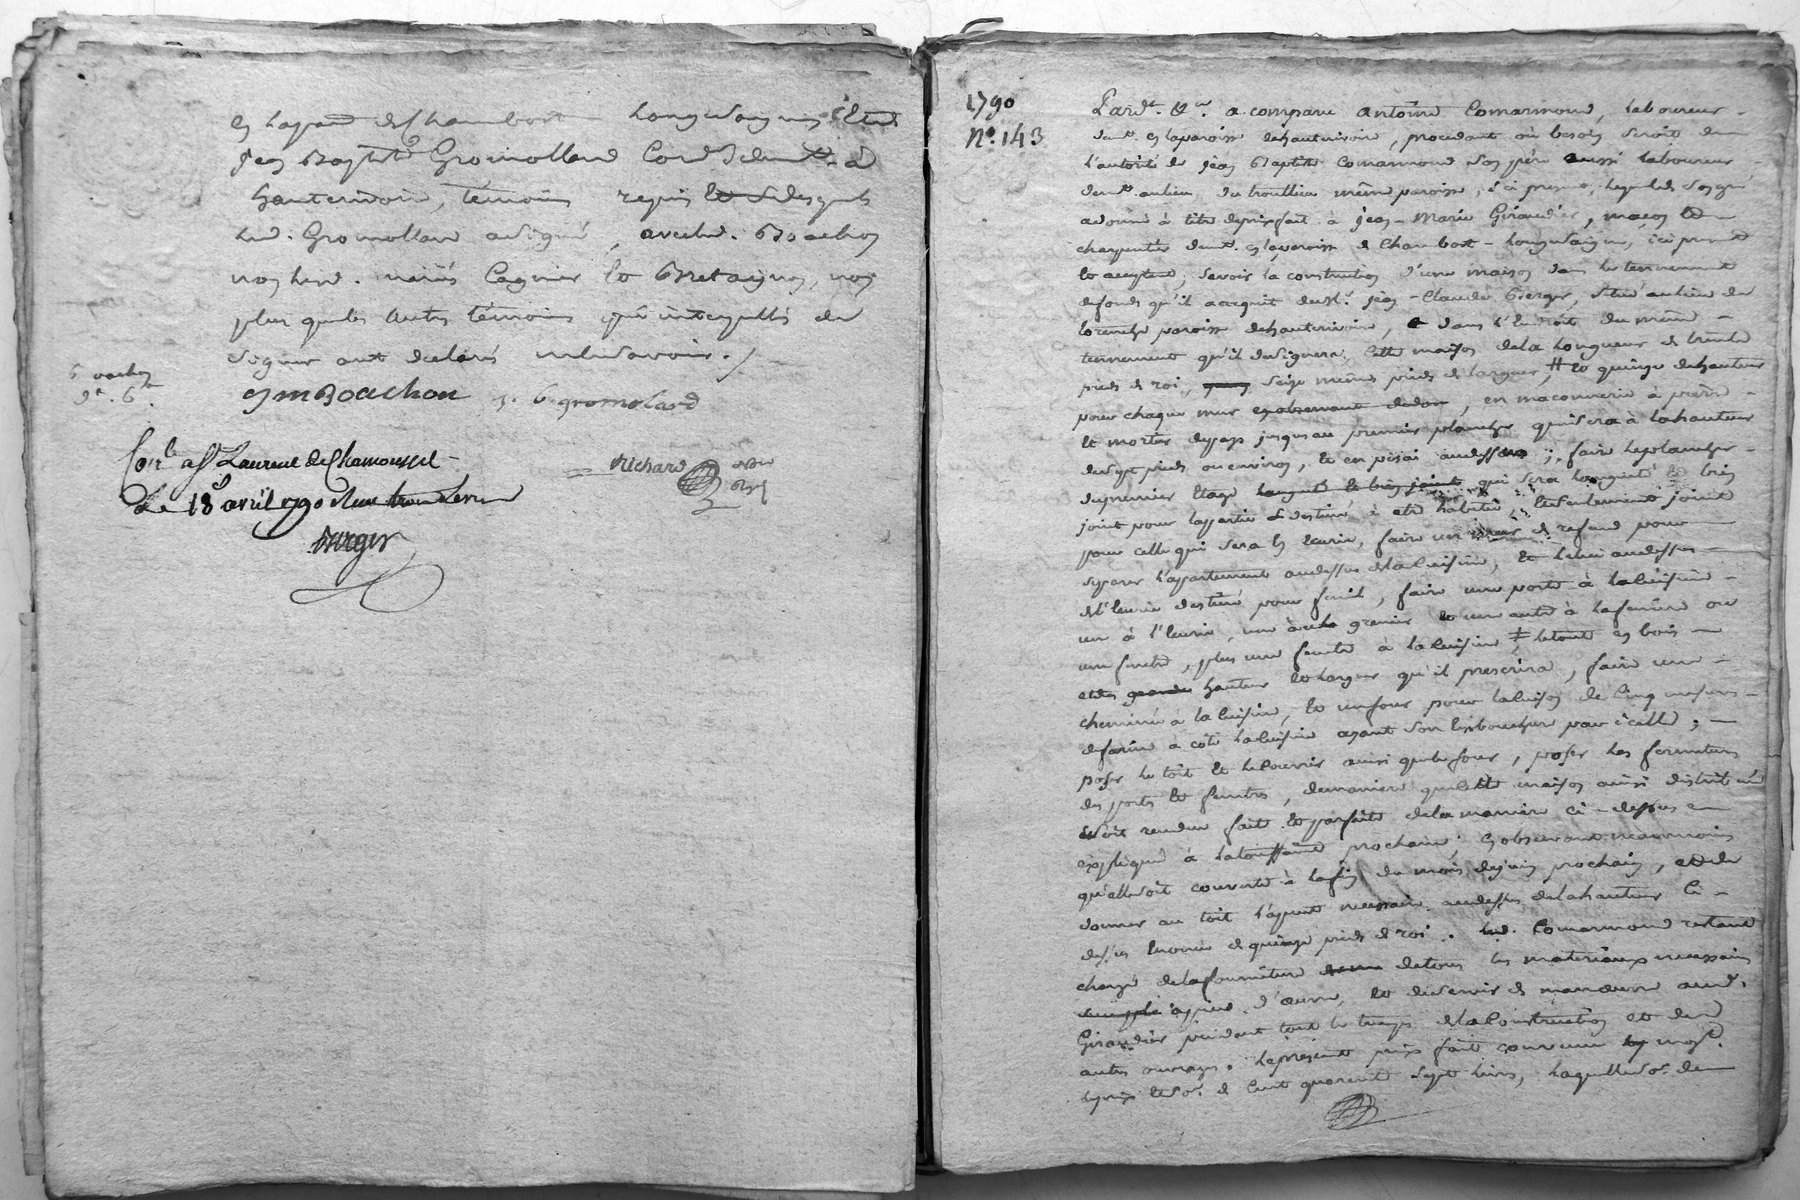 en la parr de Chambost Longessaigne et de
Jean Baptiste Gromolland Cord demt à
hauterivoire, témoins requis et desquels
led. Gromolland a signé, avec led. Boachon
non led. mariés Cagnier et Bretaigne, non
plus que les autres témoins pour interpellés de
signer ont déclaré ne le savoir ./.
5 vachon
gt. 6s
jm Boachon J. B. gromolard
Conlé a St Laurent de Chamousset
Le 18 avril 1790 Reçu
Berger
Richard
1790
No. 143
Pard. &. a comparu antoine Comarmond, laboureur
demt en la paroisse de hauterivoire, procédant où besoin seroit de
l'autorité de jean Baptiste Comarmond son père aussi laboureur
demt au lieu du trouillieu même paroisse, ici présent, lequel de son gré
a donné à titre de prix fait à jean-Marie Giraudier, maçon et
charpentier demt en la paroisse de Chambost-Longessaigne, ici présent
et acceptant, savoir la construction d'une maison dans le tennement
de fonds qu'il a acquit de sr. jean-Claude Berger, situé au lieu de
paroisse de hauterivoire, & dans l'endroit du même
tennement qu'il désignera, cette maison de la longueur de trente
pieds de roi, seize mêmes pieds de largeur, # et quinze de hauteur
pour chaque mur en observant de donner, en maconnerie à pierre
et mortier de pays jusques au premier plancher qui sera à la hauteur
de sept pieds ou environ, et en pisai au dessus; faire le plancher
du premier étage qui sera langueté et bien
joint pour la partie destinée à être habitée, et seulement joint
pour celle qui sera en écurie, faire un mur de refend pour
séparer l'appartement au dessus de la cuisine, et celui au dessus
de l'écurie destiné pour fenil, faire une porte à la cuisine
un à l'écurie, une au grenier et une autre à la fenière ou
une fenêtre, plus une fenêtre à la cuisine ≠ le tout en bois
et des hauteur et largeur qu'il prescrira, faire une
cheminée à la cuisine, et un four pour la cuison de cinq mesures
de farine à côté la cuisine ayant son embouchure par icelle;
poser le toit et le couvrir ainsi que le four, poser les fermetures
des portes et fenêtres, de manière que cette maison ainsi distribuée
soit rendue faite et parfaite de la manière ci-dessus
expliquée à la toussaint prochaine, en observant néanmoins
qu'elle soit couverte à la fin du mois de juin prochain, et de
donner au toit l'apent nécessaire au dessus de la hauteur ci-
dessus énoncée de quinze pieds de roi. led. Comarmond restant
chargé de la fourniture de tous les matériaux nécessaires
à pied d'œuvre, et de servir de manœuvre aud.
Giraudier pendant tout le temps de la construction et de
autres ouvrages. Le présent prix fait convenu moyt.
le prix et so. de cent quarante sept livres, laquelle so. de